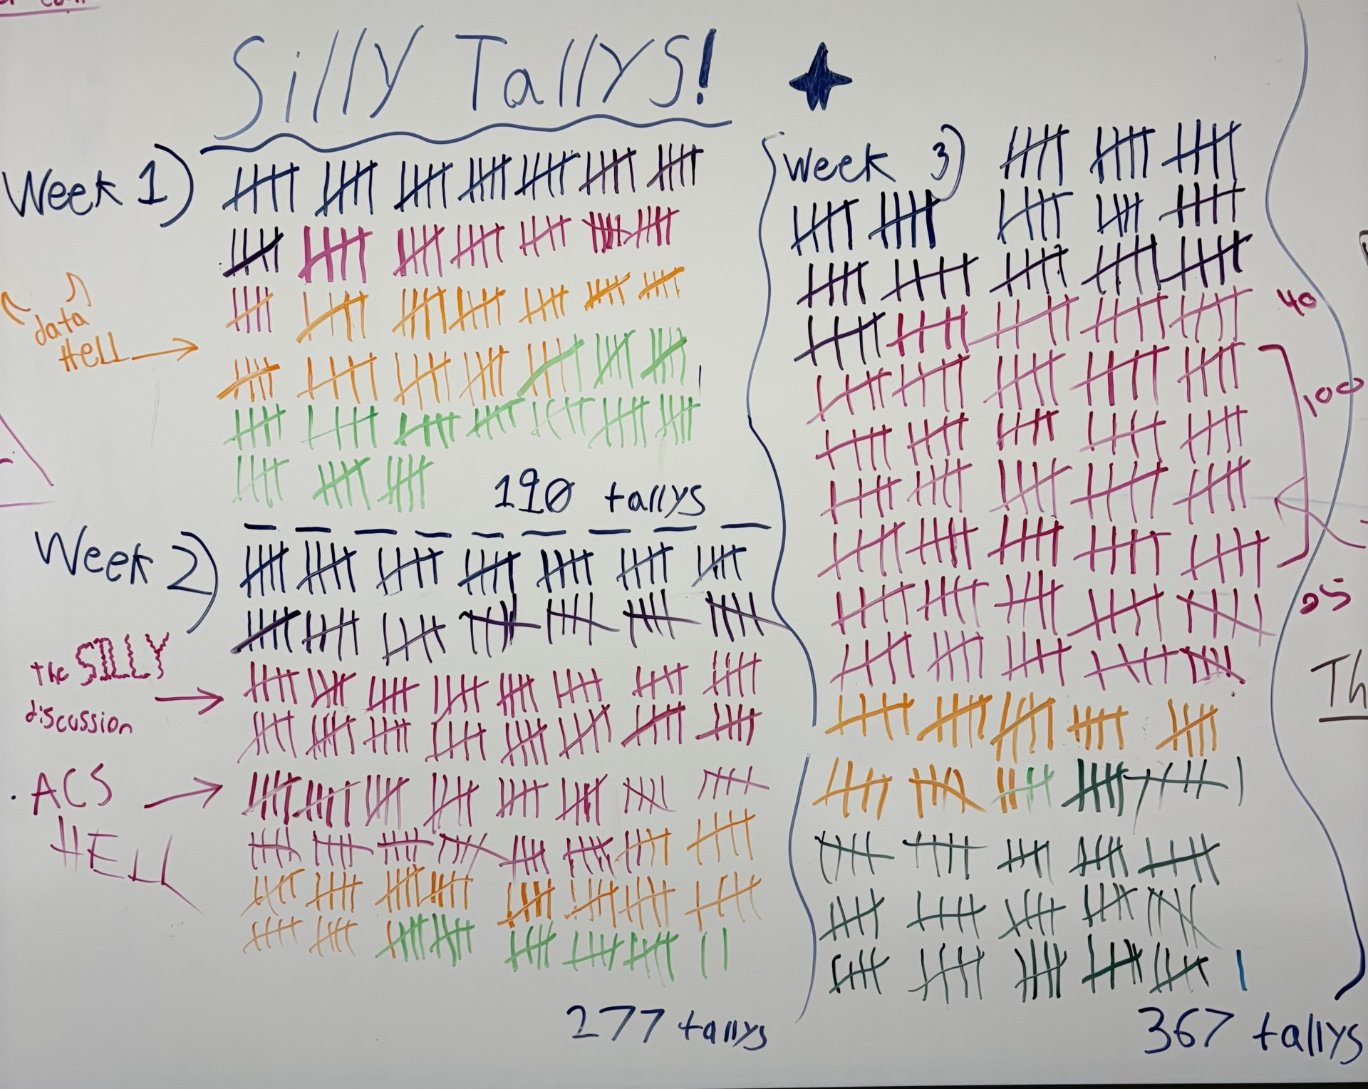 Silly Tallys!
Week 1)
data
Hell
190 tallys
Week 2)
the SILLY
discussion
ACS
HELL
277 tallys
Week 3)
40
100
25
Th
367 tallys